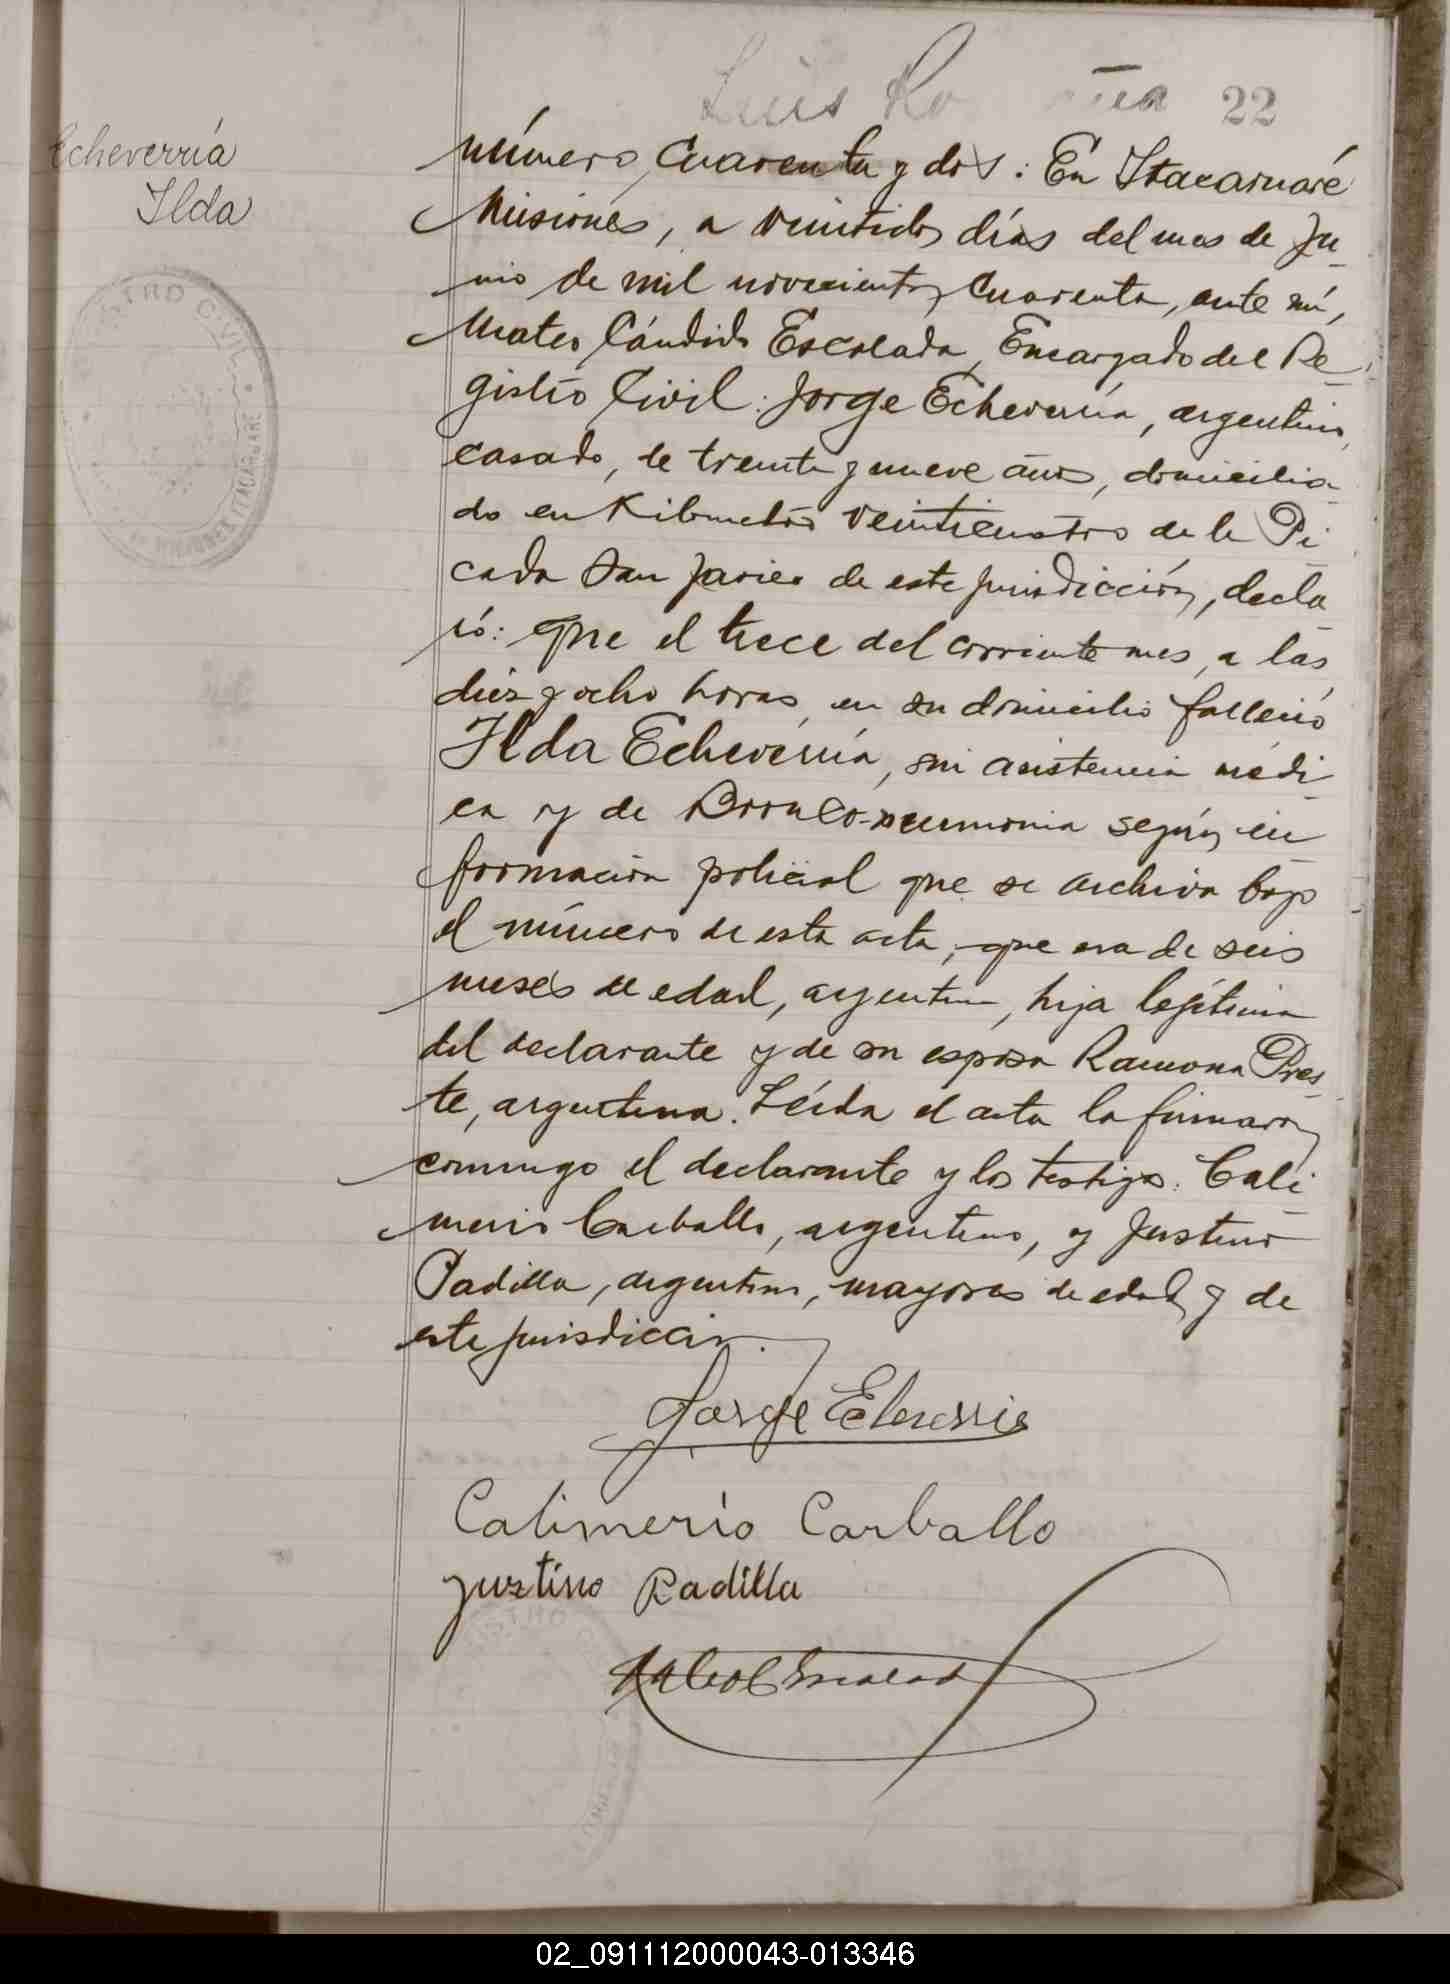 Luis
22
Echeverría
Ilda
REGISTRO CIVIL
MISIONES ITACARUARÉ
número cuarenta y dos: En Itacaruaré
Misiones, a veintidos días del mes de Ju-
nio de mil novecientos cuarenta, ante mí,
Mateo Cándido Escalada, Encargado del Re-
gistro Civil: Jorge Echeverría, argentino,
casado, de treinta y nueve años, domicilia-
do en Kilometro veinticuatro de la Pi-
cada San Javier de esta jurisdicción, decla-
ró: Que el trece del corriente mes, a las
diez y ocho horas, en su domicilio falleció
Ilda Echeverría, sin asistencia médi-
ca y de Bronco-neumonia según in-
formación policial que se archiva bajo
el número de esta acta, que era de seis
meses de edad, argentina, hija legítima
del declarante y de su esposa Ramona Pres-
te, argentina. Leída el acta la firmaron
conmigo el declarante y los testigos: Cali-
merio Carballo, argentino, y Justino
Padilla, argentino, mayores de edad y de
esta jurisdicción.
Jorge Echeverria
Calimerio Carballo
Justino Padilla
Mateo C Escalada
02_091112000043-013346